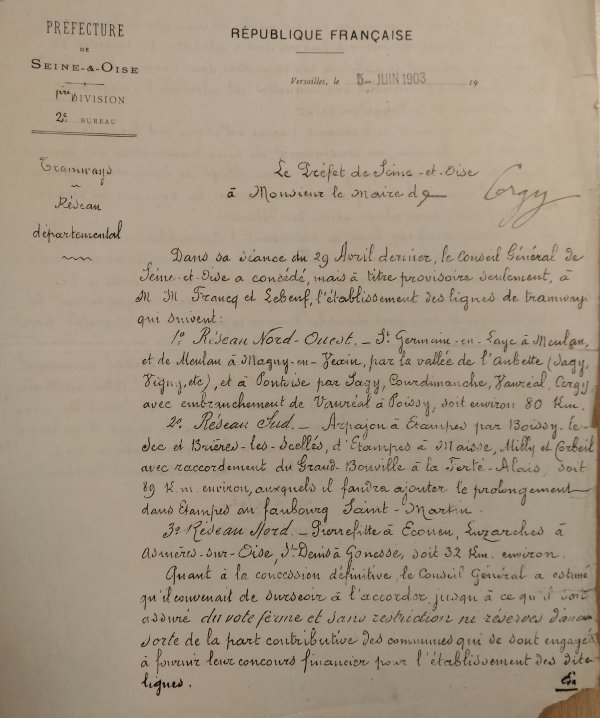 PRÉFECTURE
DE
SEINE-&-OISE
1ère DIVISION
2e BUREAU
RÉPUBLIQUE FRANÇAISE
Versailles, le 5 - JUIN 1903 19
Tramways
Réseau
départemental
Le Préfet de Seine-et-Oise
à Monsieur le Maire de Cergy
Dans sa séance du 29 Avril dernier, le Conseil Général de
Seine-et-Oise a concédé, mais à titre provisoire seulement, à
M.M. Francq et Lebeuf, l'établissement des lignes de tramways
qui suivent:
1o Réseau Nord-Ouest. _ St Germain-en-Laye à Meulan,
et de Meulan à Magny-en-Vexin, par la vallée de l'Aubette (Sagy,
Vigny, etc), et à Pontoise par Sagy, Courdimanche, Vauréal, Cergy
avec embranchement de Vauréal à Poissy, soit environ 80 Km.
2o Réseau Sud. _ Arpajon à Etampes par Boissy-le-
Sec et Brières-les-Scellés, d'Etampes à Maisse, Milly et Corbeil
avec raccordement du Grand-Bouville à la Ferté-Alais, soit
89 K.m. environ, auxquels il faudra ajouter le prolongement
dans Etampes au faubourg Saint-Martin.
3o Réseau Nord. _ Pierrefitte à Ecouen, Luzarches à
Asnières-sur-Oise, St Denis à Gonesse, soit 32 Km. environ.
Quant à la concession définitive, le Conseil Général a estimé
qu'il convenait de surseoir à l'accorder, jusqu'à ce qu'il soit
assuré du vote ferme et sans restriction ni réserves d'aucune
sorte de la part contributive des communes qui se sont engagées
à fournir leur concours financier pour l'établissement des dites
lignes.